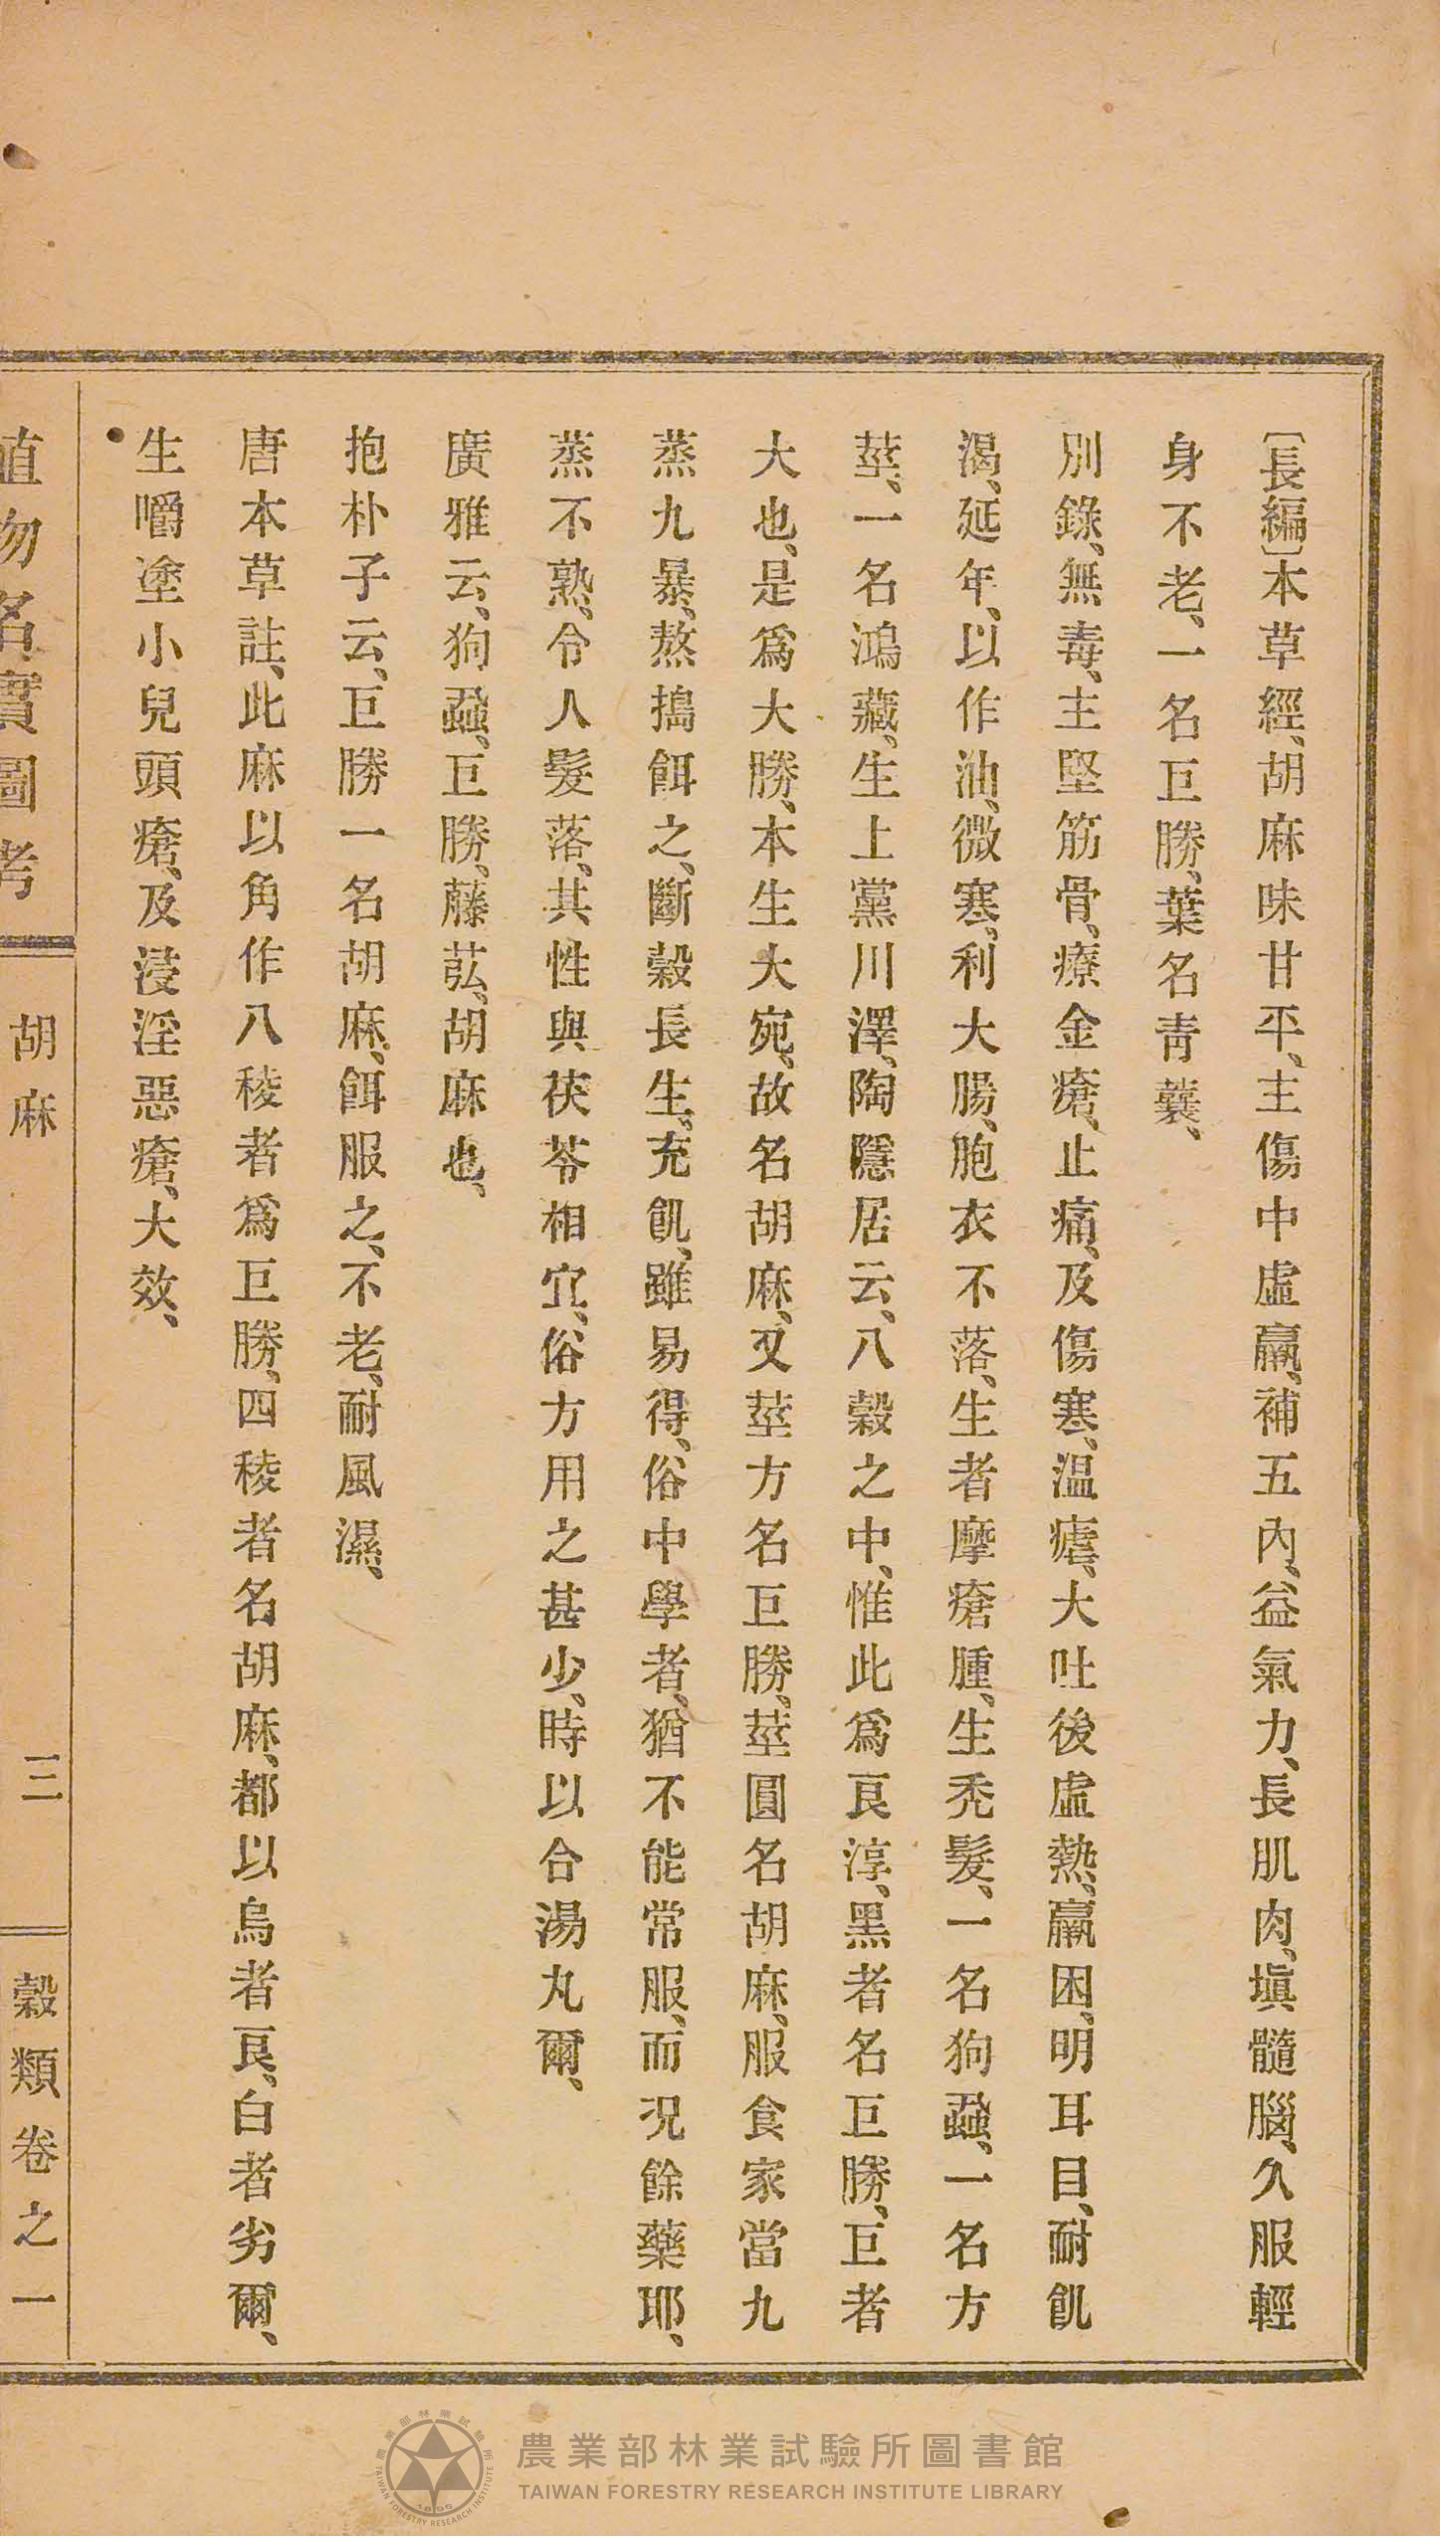 〔長編〕本草經、胡麻味甘平、主傷中虛羸、補五內、益氣力、長肌肉、塡髓腦、久服輕
身不老、一名巨勝、葉名靑蘘、
別錄、無毒、主堅筋骨、療金瘡、止痛、及傷寒、溫瘧、大吐後虛熱、羸困、明耳目、耐飢
渴、延年、以作油、微寒、利大腸、胞衣不落、生者摩瘡腫、生禿髮、一名狗蝨、一名方
莖、一名鴻藏、生上黨川澤、陶隱居云、八穀之中、惟此爲良、淳黑者名巨勝、巨者
大也、是爲大勝、本生大宛、故名胡麻、又莖方名巨勝、莖圓名胡麻、服食家當九
蒸九暴、熬搗餌之、斷穀長生、充飢、雖易得、俗中學者、猶不能常服、而況餘藥耶、
蒸不熟、令人髮落、其性與茯苓相宜、俗方用之甚少、時以合湯丸爾、
廣雅云、狗蝨、巨勝、藤苰、胡麻也、
抱朴子云、巨勝一名胡麻、餌服之、不老、耐風濕、
唐本草註、此麻以角作八稜者爲巨勝、四稜者名胡麻、都以烏者良、白者劣爾、
生嚼塗小兒頭瘡、及浸淫惡瘡、大效、
植物名實圖考
胡麻
三
穀類卷之一
農業部林業試驗所圖書館
TAIWAN FORESTRY RESEARCH INSTITUTE LIBRARY
農業部林業試驗所
TAIWAN FORESTRY RESEARCH INSTITUTE
1895